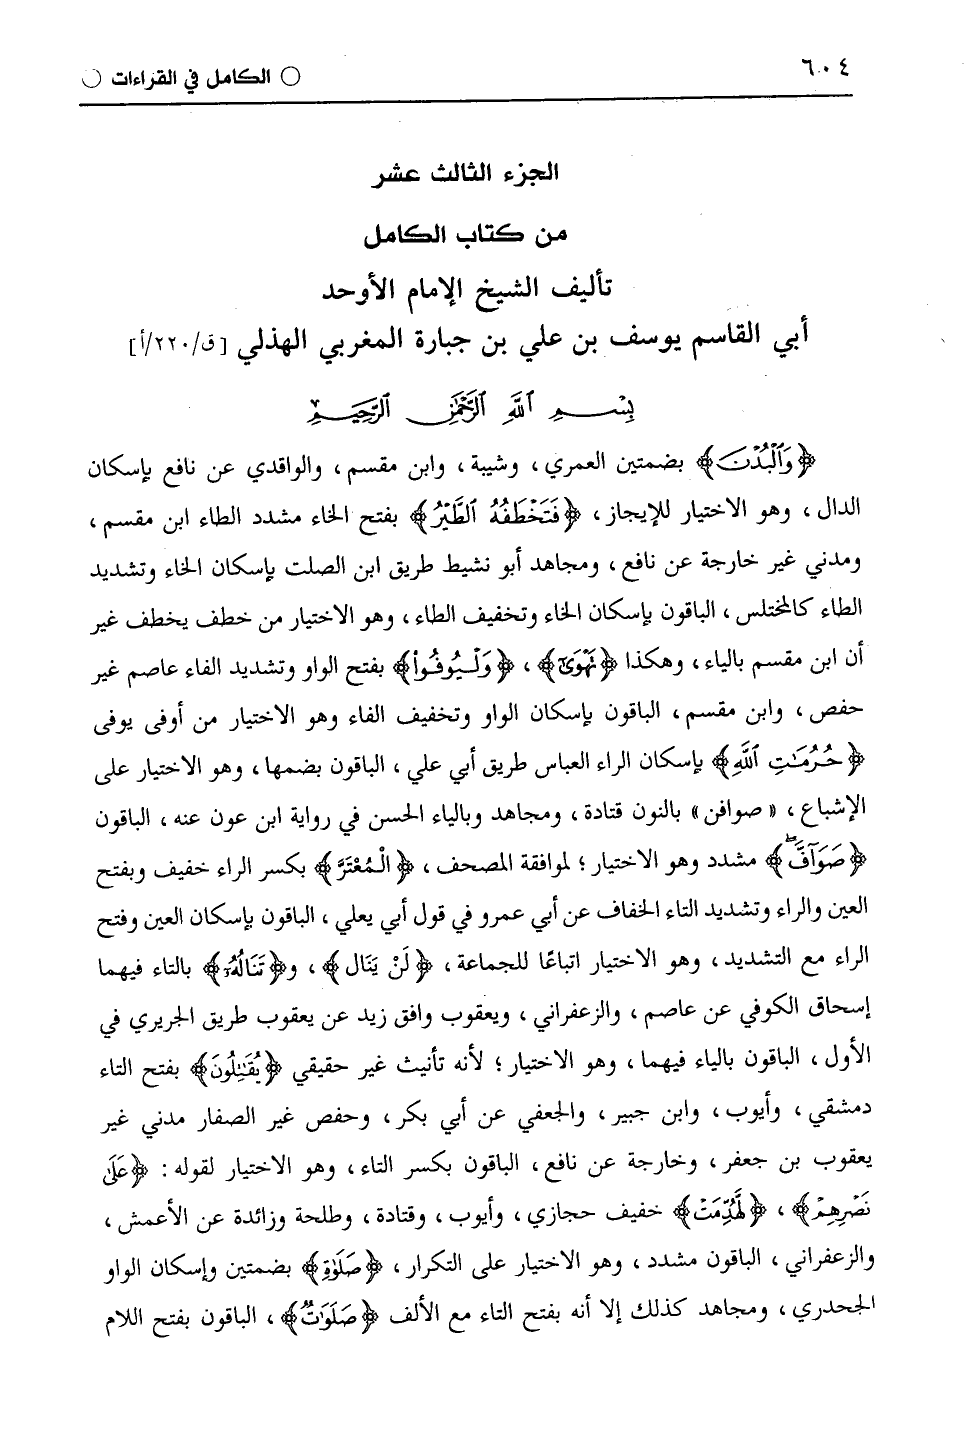 ٦٠٤
الكامل في القراءات
الجزء الثالث عشر
من كتاب الكامل
تأليف الشيخ الإمام الأوحد
أبي القاسم يوسف بن علي بن جبارة المغربي الهذلي [ق/٢٢٠/أ]
بِسْمِ ٱللَّهِ ٱلرَّحْمَٰنِ ٱلرَّحِيمِ
﴿وَٱلْبُدْنَ﴾ بضمتين العمري، وشيبة، وابن مقسم، والواقدي عن نافع بإسكان
الدال، وهو الاختيار للإيجاز، ﴿فَتَخْطَفُهُ ٱلطَّيْرُ﴾ بفتح الخاء مشدد الطاء ابن مقسم،
ومدني غير خارجة عن نافع، ومجاهد أبو نشيط طريق ابن الصلت بإسكان الخاء وتشديد
الطاء كالمختلس، الباقون بإسكان الخاء وتخفيف الطاء، وهو الاختيار من خطف يخطف غير
أن ابن مقسم بالياء، وهكذا ﴿تَهْوَىٰ﴾، ﴿وَلْيُوفُوا﴾ بفتح الواو وتشديد الفاء عاصم غير
حفص، وابن مقسم، الباقون بإسكان الواو وتخفيف الفاء وهو الاختيار من أوفى يوفى
﴿حُرُمَٰتِ ٱللَّهِ﴾ بإسكان الراء العباس طريق أبي علي، الباقون بضمها، وهو الاختيار على
الإشباع، «صوافن» بالنون قتادة، ومجاهد وبالياء الحسن في رواية ابن عون عنه، الباقون
﴿صَوَآفَّ﴾ مشدد وهو الاختيار؛ لموافقة المصحف، ﴿الْمُعْتَرَّ﴾ بكسر الراء خفيف وبفتح
العين والراء وتشديد التاء الخفاف عن أبي عمرو في قول أبي يعلي، الباقون بإسكان العين وفتح
الراء مع التشديد، وهو الاختيار اتباعًا للجماعة، ﴿لَنْ يَنَال﴾، و﴿تَنَالُهُ﴾ بالتاء فيهما
إسحاق الكوفي عن عاصم، والزعفراني، ويعقوب وافق زيد عن يعقوب طريق الجريري في
الأول، الباقون بالياء فيهما، وهو الاختيار؛ لأنه تأنيث غير حقيقي ﴿يُقَٰتِلُونَ﴾ بفتح التاء
دمشقي، وأيوب، وابن جبير، والجعفي عن أبي بكر، وحفص غير الصفار مدني غير
يعقوب بن جعفر، وخارجة عن نافع، الباقون بكسر التاء، وهو الاختيار لقوله: ﴿عَلَىٰ
نَصْرِهِمْ﴾، ﴿لَهُدِّمَتْ﴾ خفيف حجازي، وأيوب، وقتادة، وطلحة وزائدة عن الأعمش،
والزعفراني، الباقون مشدد، وهو الاختيار على التكرار، ﴿صَلَوٰةِ﴾ بضمتين وإسكان الواو
الجحدري، ومجاهد كذلك إلا أنه بفتح التاء مع الألف ﴿صَلَوَٰتٌ﴾، الباقون بفتح اللام